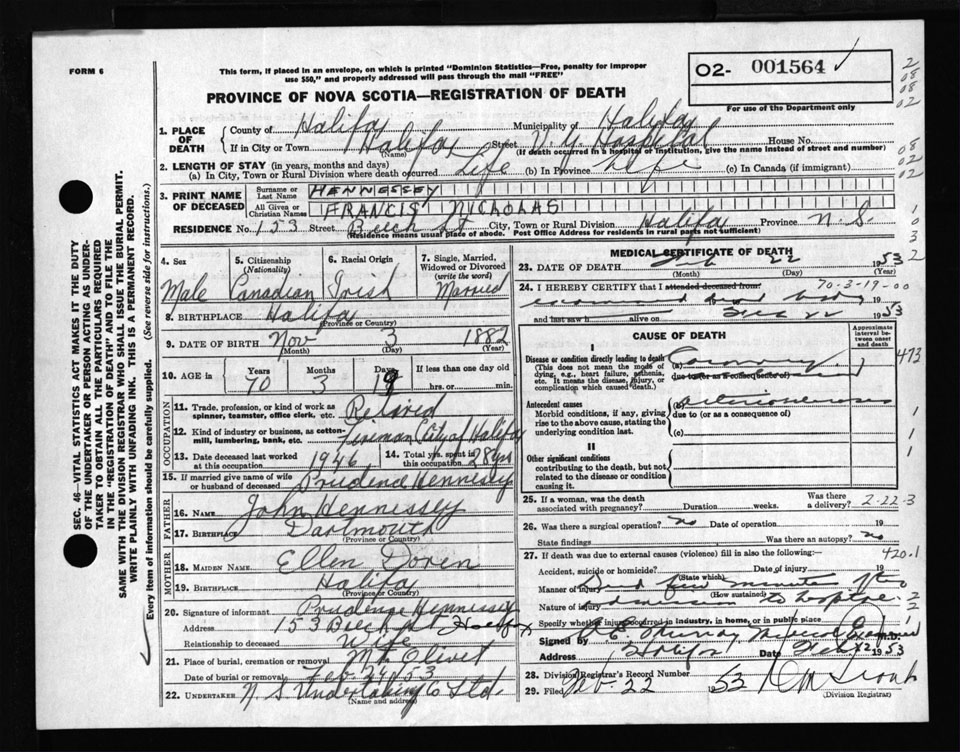 FORM 6
This form, if placed in an envelope, on which is printed "Dominion Statistics—Free, penalty for improper
use $50," and properly addressed will pass through the mail "FREE"
O2- 001564
PROVINCE OF NOVA SCOTIA—REGISTRATION OF DEATH
For use of the Department only
1. PLACE OF DEATH
County of Halifax Municipality of Halifax
If in City or Town Halifax Street V. G. Hospital House No.
(Name) (If death occurred in a hospital or institution, give the name instead of street and number)
2. LENGTH OF STAY (in years, months and days)
(a) In City, Town or Rural Division where death occurred Life (b) In Province Life (c) In Canada (if immigrant)
3. PRINT NAME OF DECEASED
Surname or Last Name HENNESSEY
All Given or Christian Names FRANCIS NICHOLAS
RESIDENCE No. 153 Street Beech St City, Town or Rural Division Halifax Province N. S.
(Residence means usual place of abode. Post Office Address for residents in rural parts not sufficient)
4. Sex Male
5. Citizenship (Nationality) Canadian
6. Racial Origin Irish
7. Single, Married, Widowed or Divorced (write the word) Married
8. BIRTHPLACE Halifax
(Province or Country)
9. DATE OF BIRTH Nov 3 1882
(Month) (Day) (Year)
10. AGE in
Years Months Days If less than one day
70 3 19 hrs. or min.
OCCUPATION
11. Trade, profession, or kind of work as
spinner, teamster, office clerk, etc. Retired
12. Kind of industry or business, as cotton-
mill, lumbering, bank, etc. Fireman City of Halifax
13. Date deceased last worked at this occupation 1946
14. Total yrs. spent in this occupation 28 yrs
15. If married give name of wife or husband of deceased Prudence Hennessey
FATHER
16. NAME John Hennessey
17. BIRTHPLACE Dartmouth
(Province or Country)
MOTHER
18. MAIDEN NAME Ellen Doren
19. BIRTHPLACE Halifax
(Province or Country)
20. Signature of informant Prudence Hennessey
Address 153 Beech St Halifax
Relationship to deceased Wife
21. Place of burial, cremation or removal Mt. Olivet
Date of burial or removal Feb 24/53
22. UNDERTAKER N. S. Undertaking Co Ltd.
(Name and address)
MEDICAL CERTIFICATE OF DEATH
23. DATE OF DEATH Feb 22 1953
(Month) (Day) (Year)
24. I HEREBY CERTIFY that I attended deceased from 70-3-19-00
examined dead body 19
and last saw h alive on Feb 22 1953
CAUSE OF DEATH
Approximate interval between onset and death
I
Disease or condition directly leading to death (a) Coronary
(This does not mean the mode of
dying, e.g., heart failure, asthenia,
etc. It means the disease, injury, or
complication which caused death.)
due to (or as a consequence of)
473
Antecedent causes (b)
Morbid conditions, if any, giving
rise to the above cause, stating the
underlying condition last.
due to (or as a consequence of)
(c)
II
Other significant conditions
contributing to the death, but not
related to the disease or condition
causing it.
25. If a woman, was the death associated with pregnancy? Duration weeks. Was there a delivery? 2-22-3
26. Was there a surgical operation? no Date of operation 19
State findings Was there an autopsy? no
27. If death was due to external causes (violence) fill in also the following:— 420.1
Accident, suicide or homicide? Date of injury 19
(State which)
Manner of injury Dead few minutes after
(How sustained)
Nature of injury admission to hospital
Specify whether injury occurred in industry, in home, or in public place
Signed by Murray Medical Examiner M.D.
Address Halifax Date Feb 22 1953
28. Division Registrar's Record Number
29. Filed Feb. 22 1953
(Division Registrar)
SEC. 46—VITAL STATISTICS ACT MAKES IT THE DUTY
OF THE UNDERTAKER OR PERSON ACTING AS UNDER-
TAKER TO OBTAIN ALL THE PARTICULARS REQUIRED
IN THE "REGISTRATION OF DEATH" AND TO FILE THE
SAME WITH THE DIVISION REGISTRAR WHO SHALL ISSUE THE BURIAL PERMIT.
WRITE PLAINLY WITH UNFADING INK. THIS IS A PERMANENT RECORD.
Every item of information should be carefully supplied. (See reverse side for instructions.)
2
08
08
02
08
02
02
1
0
3
2
1
1